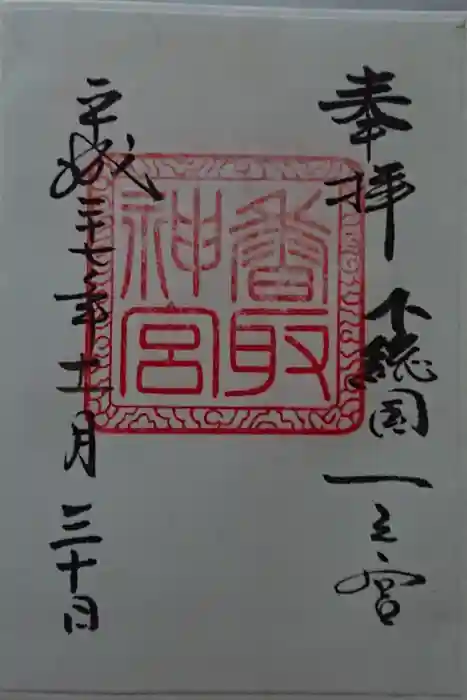 奉拝 下総国 一之宮
香取
神宮
平成二十七年十一月三十日